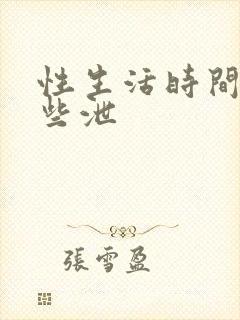 性生活時間
些泄
張雪盈